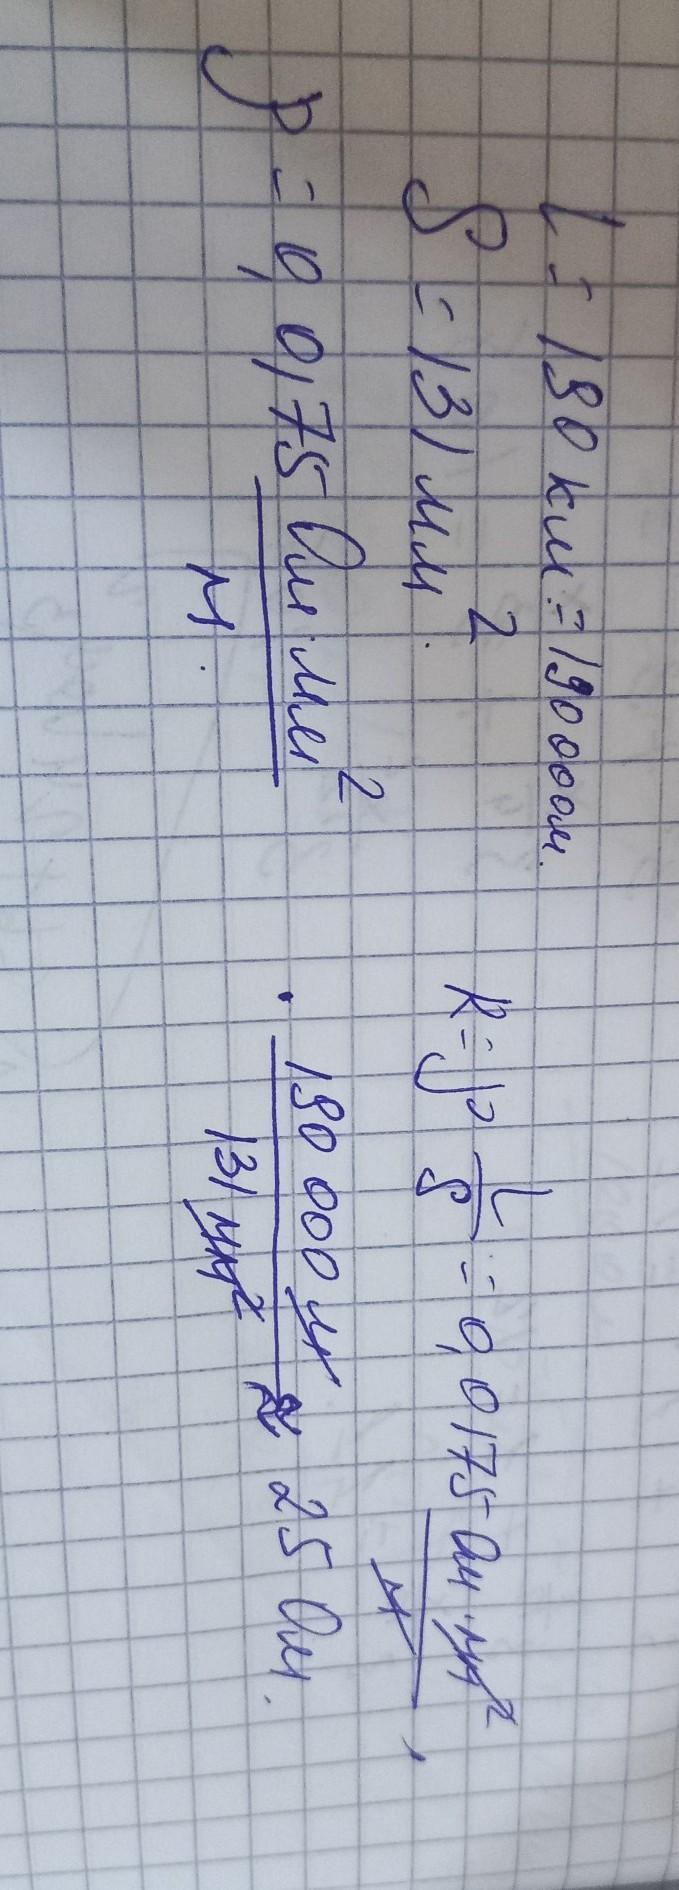 L = 190 км = 190 000 м.
S = 131 мм².
ρ = 0,0175 Ом·мм²
м.
R = ρ L/S = 0,0175 Ом·мм²/м ·
· 190 000 м / 131 мм² ≈ 25 Ом.